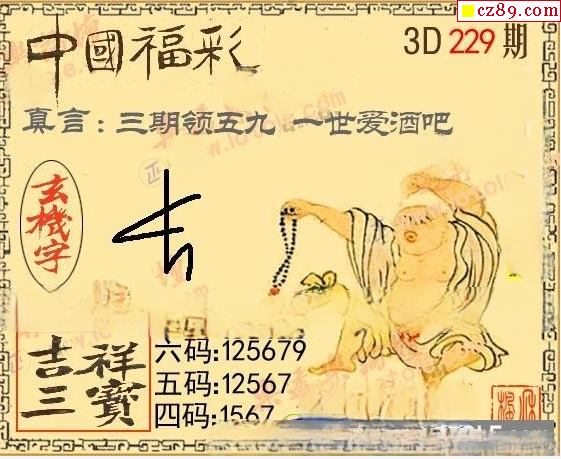 cz89.com
中國福彩
3D 229 期
真言：三期领五九 一世爱酒吧
玄機字
吉祥三寶
六码:125679
五码:12567
四码:1567